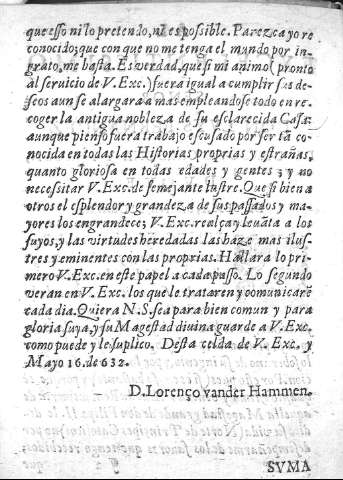 que esso ni lo pretendo, ni es possible. Parezca yo re
conocido; que con que no me tenga el mundo por in
grato, me basta. Es verdad, que si mi animo (pronto
al seruicio de V. Exc.) fuera igual a cumplir sus de-
seos aun se alargara a mas empleandose todo en re
coger la antigua nobleza de su esclarecida Casa:
aunque pienso fuera trabajo escusado por ser tã co
nocida en todas las Historias proprias y estrañas,
quanto gloriosa en todas edades y gentes; y no
necesitar V. Exc. de semejante lustre. Que si bien a
otros el esplendor y grandeza de sus passados y ma-
yores los engrandece; V. Exc. realça y leuãta a los
suyos, y las virtudes heredadas las haze mas ilus-
tres y eminentes con las proprias. Hallara lo pri-
mero V. Exc. en este papel a cada passo. Lo segundo
veran en V. Exc. los que le trataren y comunicarẽ
cada dia. Quiera N. S. sea para bien comun y para
gloria suya, y su Magestad diuina guarde a V. Exc.
como puede y le suplico. Desta celda de V. Exc. y
Mayo 16. de 632.
D. Lorenço vander Hammen.
SVMA